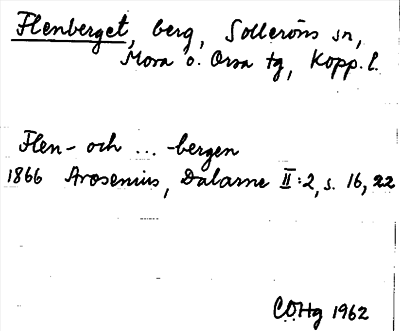 Flenberget, berg, Solleröns sn,
Mora o. Orsa tg, Kopp. l.
Flen- och ... -bergen
1866 Arosenius, Dalarne II:2, s. 16, 22
COHg 1962